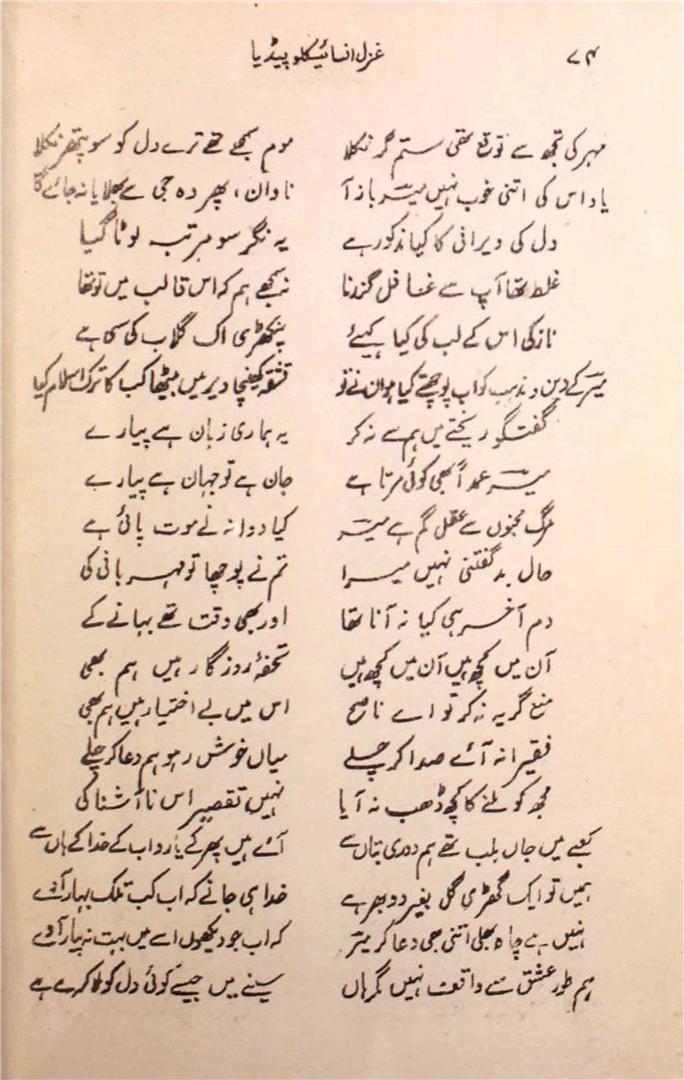 غزل انسائیکلوپیڈیا ۷۴
مہر کی تجھ سے توقع تھی ستم گر نکلا موم سمجھے تھے ترے دل کو سو پتھر نکلا
یاد اس کی اتنی خوب نہیں میر باز آ نادان، پھر وہ جی سے بھلایا نہ جائے گا
دل کی ویرانی کا کیا مذکور ہے یہ نگر سو مرتبہ لوٹا گیا
غلط تھا آپ سے غافل گزرنا نہ سمجھے ہم کہ اس قالب میں تو تھا
نازکی اس کے لب کی کیا کہیئے پنکھڑی اک گلاب کی سی ہے
میر کے دین و مذہب کو اب پوچھتے کیا ہو ان نے تو قشقہ کھینچا دیر میں بیٹھا کب کا ترک اسلام کیا
گفتگو ریختے میں ہم سے نہ کر یہ ہماری زبان ہے پیارے
میر عمداً بھی کوئی مرتا ہے جان ہے تو جہان ہے پیارے
مرگ مجنوں سے عقل گم ہے میر کیا دوانہ نے موت پائی ہے
حال بد گفتنی نہیں میرا تم نے پوچھا تو مہربانی کی
دم آخر ہی کیا نہ آنا تھا اور بھی وقت تھے بہانے کے
آن میں کچھ ہیں آن میں کچھ ہیں تحفۂ روزگار ہیں ہم بھی
منع گریہ نہ کر تو اے ناصح اس میں بے اختیار ہیں ہم بھی
فقیرانہ آئے صدا کر چلے میاں خوش رہو ہم دعا کر چلے
مجھ کو ملنے کا کچھ ڈھب نہ آیا نہیں تقصیر اس نا آشنا کی
کعبے میں جاں بلب تھے ہم دوری بتاں سے آئے ہیں پھر کے یارو اب کے خدا کے ہاں سے
ہمیں تو ایک گھڑی گل بغیر دوبھر ہے خدا ہی جانے کہ اب کب تلک بہار آوے
نہیں ہے چاہ بھلی اتنی بھی دعا کر میر کہ اب جو دیکھوں اسے میں بہت نہ پیار آوے
ہم طور عشق سے واقف نہیں مگر ہاں سینے میں جیسے کوئی دل کو ملا کرے ہے